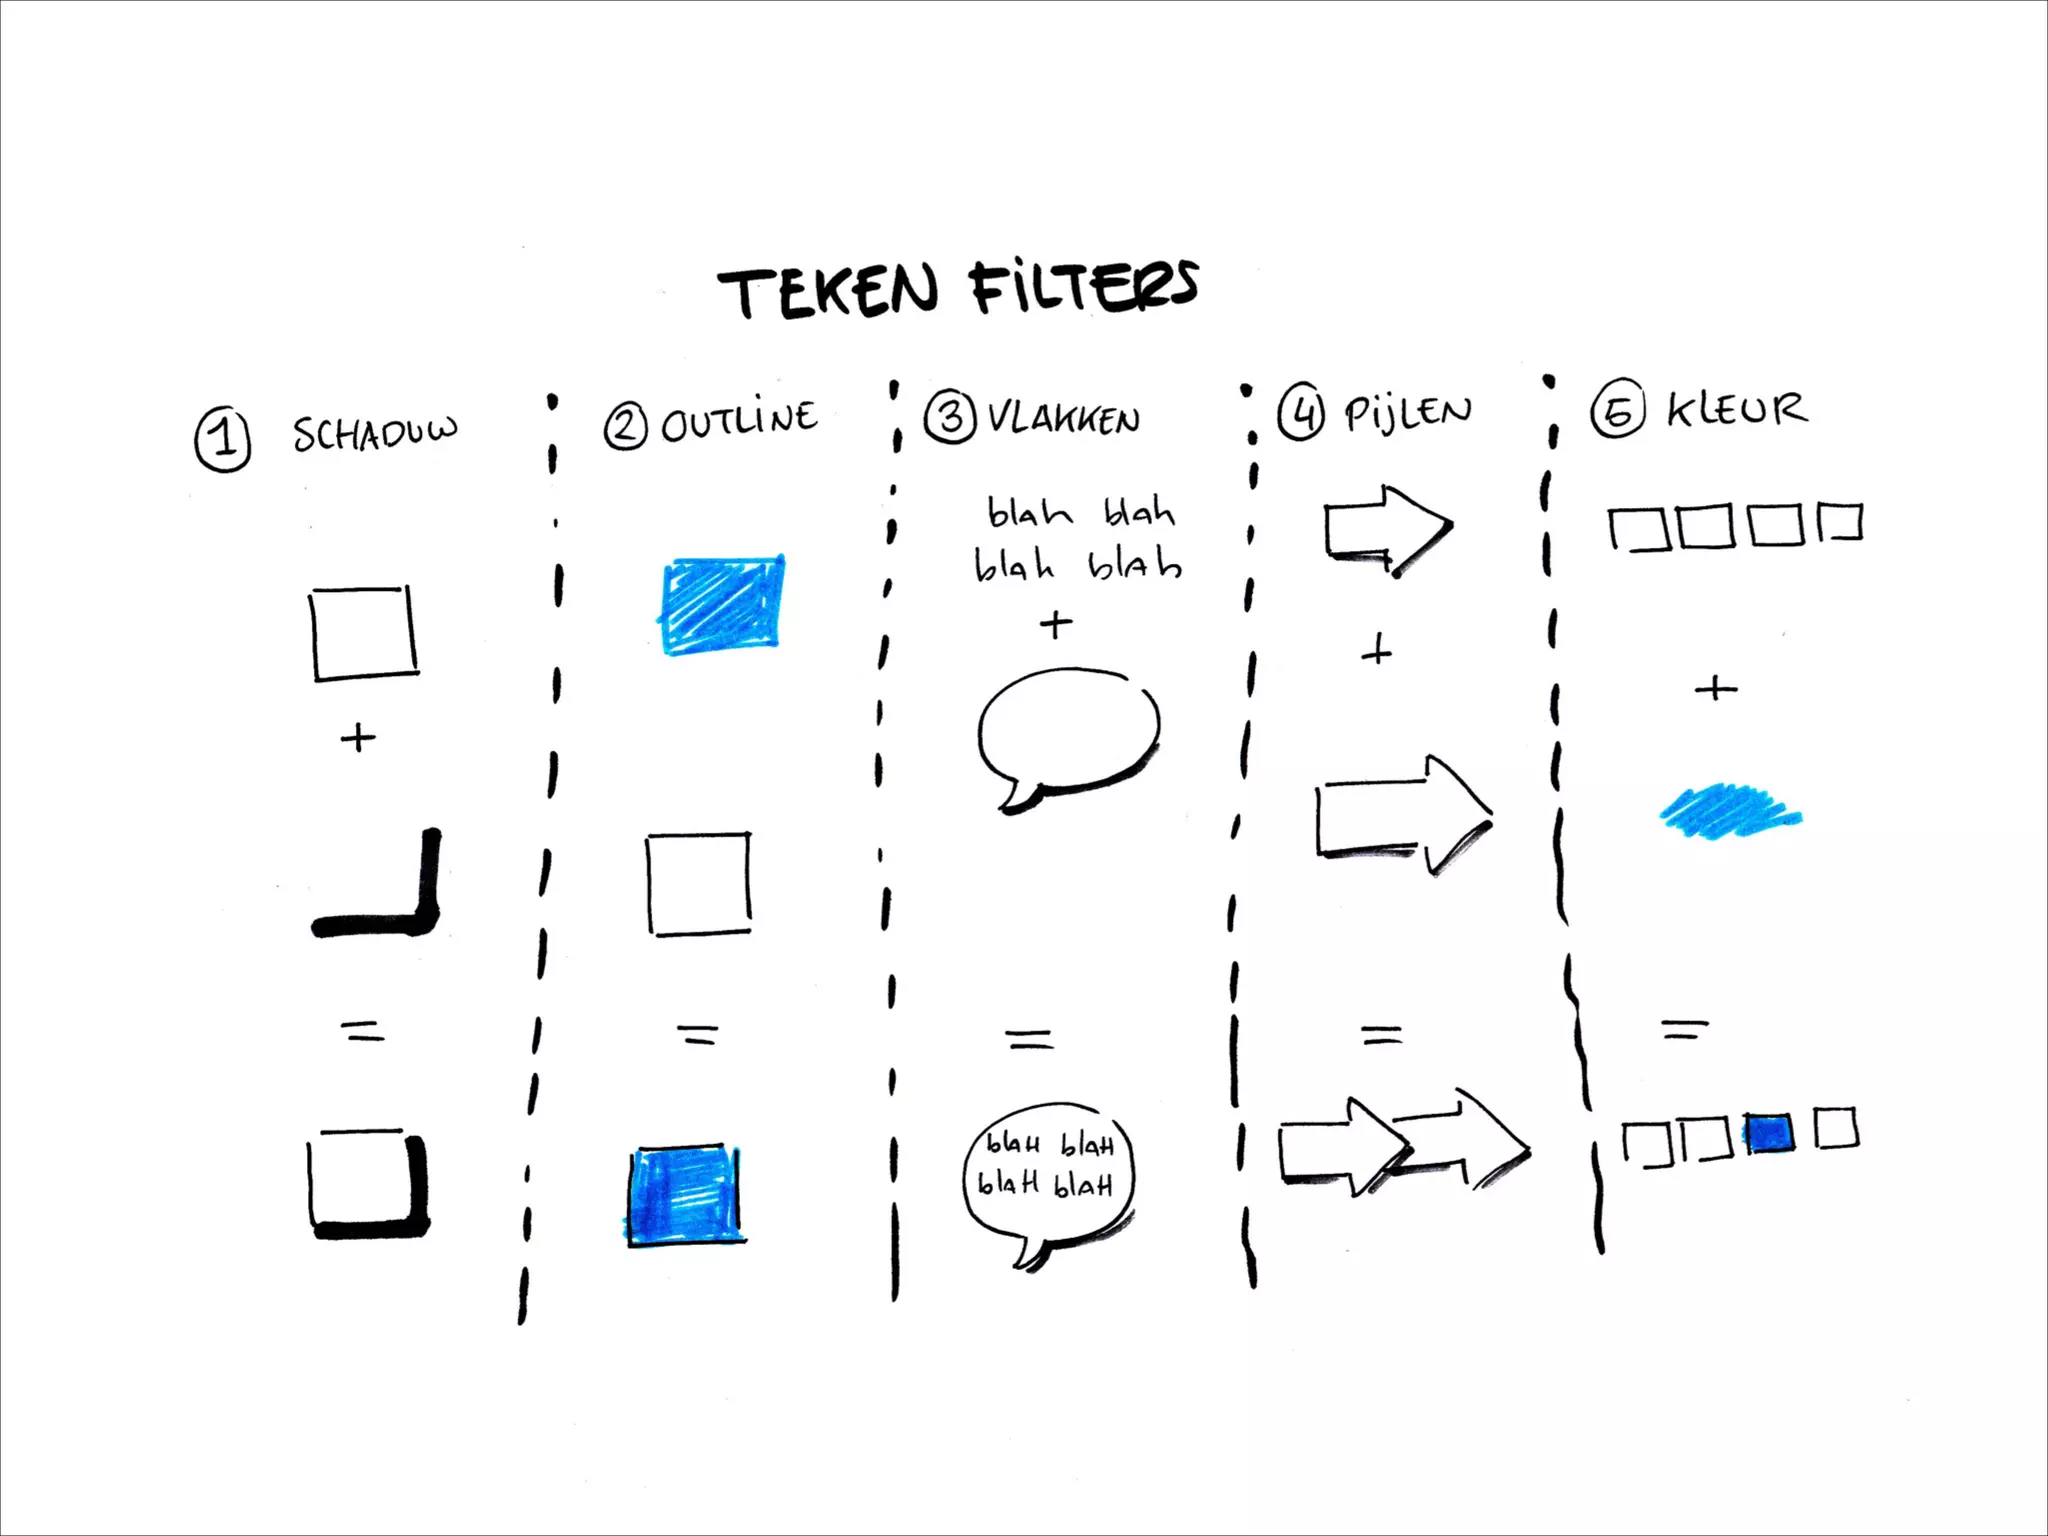 TEKEN FiLTERS
1 SCHADUW
2 OUTLiNE
3 VLAKKEN
4 PijLEN
5 KLEUR
blah blah
blah blah
+
+
+
+
=
=
=
=
=
blaH blaH
blaH blaH